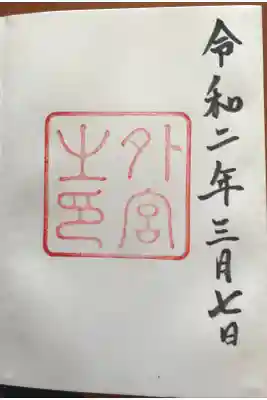 令和二年三月七日
外宮
之印